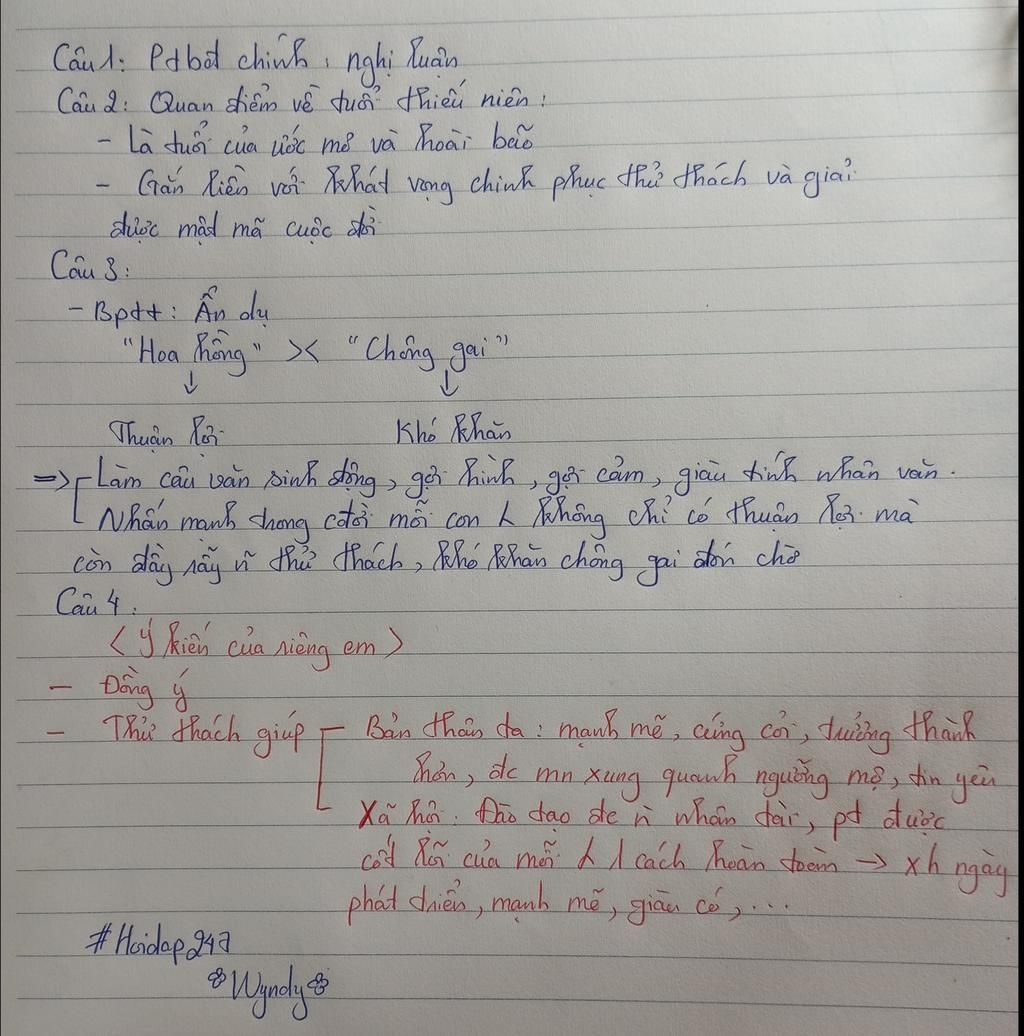 Câu 1: Ptbđ chính: nghị luận
Câu 2: Quan điểm về tuổi thiếu niên:
- Là tuổi của ước mơ và hoài bão
- Gắn liền với khát vọng chinh phục thử thách và giải
được mật mã cuộc đời
Câu 3:
- Bptt: Ẩn dụ
"Hoa hồng" >< "Chông gai"
↓ ↓
Thuận lợi Khó khăn
=> Làm câu văn sinh động, gợi hình, gợi cảm, giàu tính nhân văn.
Nhấn mạnh trong cđời mỗi con không chỉ có thuận lợi mà
còn đầy rẫy ~n thử thách, khó khăn chông gai đón chờ
Câu 4:
< Ý kiến của riêng em >
- Đồng ý
- Thử thách giúp Bản thân ta: mạnh mẽ, cứng cỏi, trưởng thành
hơn, đc mn xung quanh ngưỡng mộ, tin yêu
Xã hội: Đào tạo đc ~n nhân tài, pt được
cốt lõi của mỗi 1 cách hoàn toàn → xh ngày
phát triển, mạnh mẽ, giàu có, ...
#Hoidap247
Wyndy